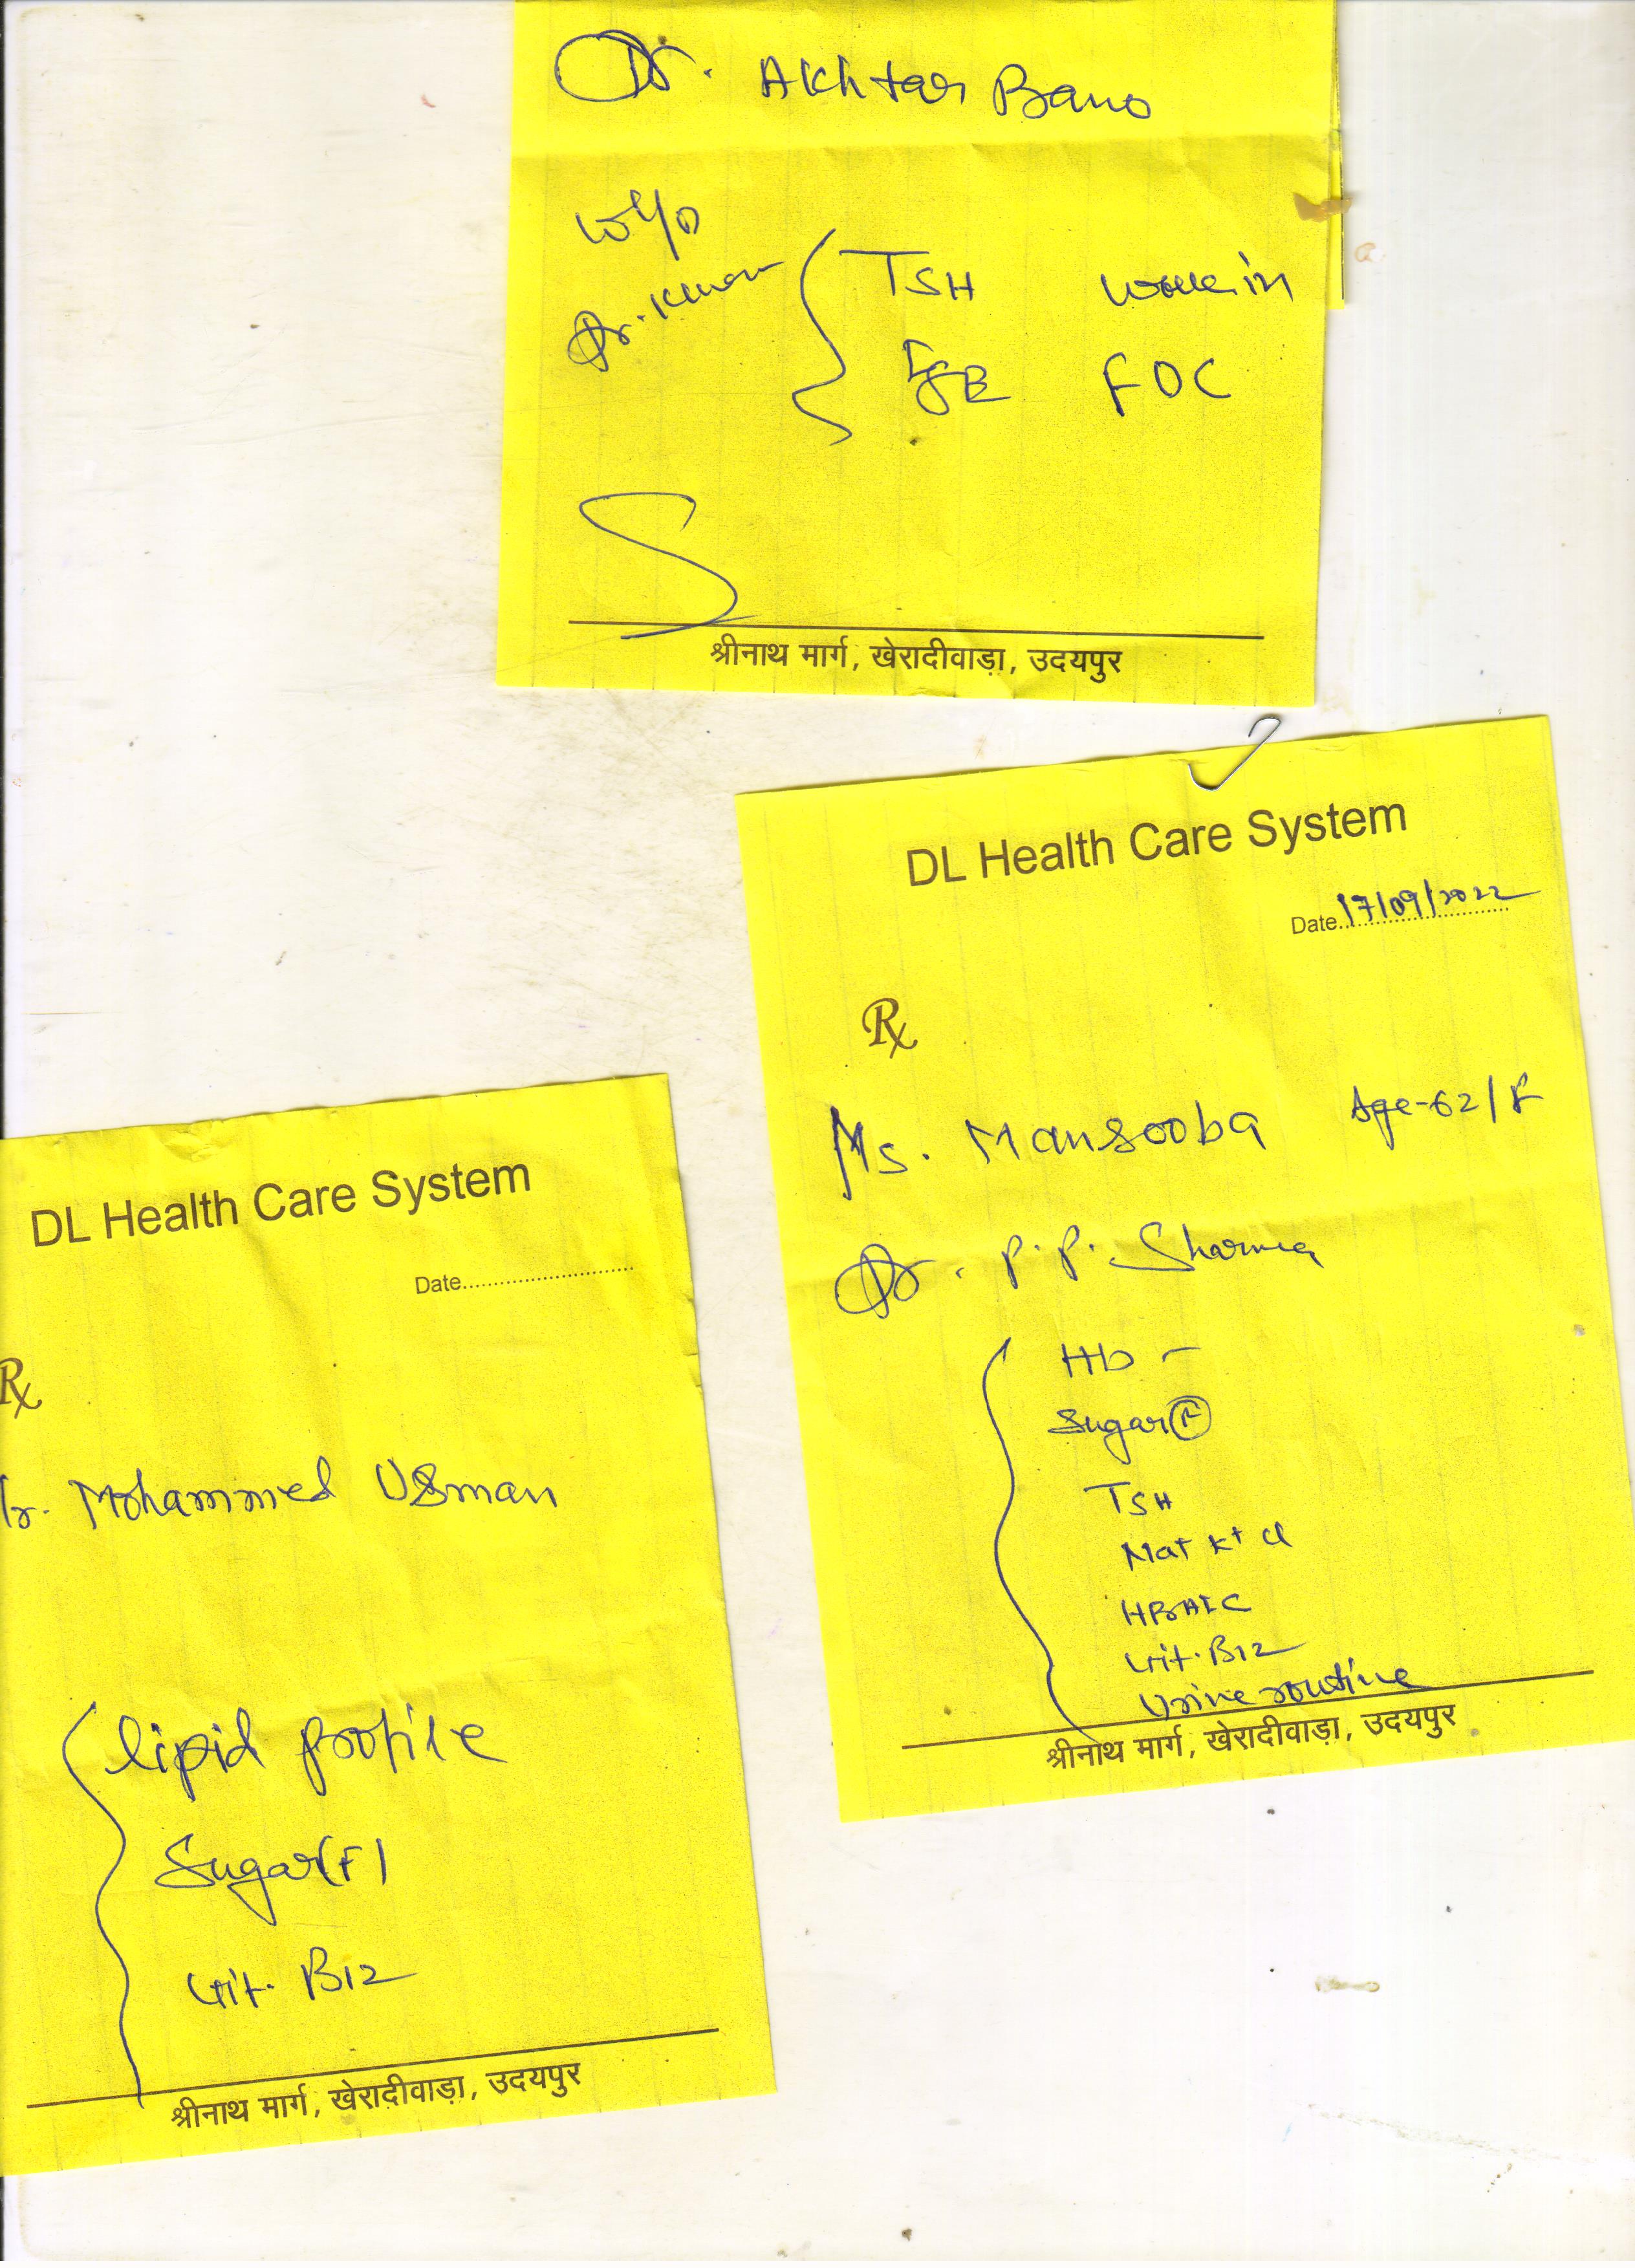 Dr. Akhtar Bano
W/o
Dr. Khan
TSH
IgE
FOC
श्रीनाथ मार्ग, खेरादीवाड़ा, उदयपुर
DL Health Care System
Date 17/09/2022
Rx
Ms. Mansooba Age-62/F
Dr. P.P. Sharma
Hb -
Sugar (F)
TSH
Na+ K+ Cl
HBA1C
Vit. B12
Urine routine
श्रीनाथ मार्ग, खेरादीवाड़ा, उदयपुर
DL Health Care System
Date
Rx
Mohammed Usman
lipid profile
Sugar (F)
Vit. B12
श्रीनाथ मार्ग, खेरादीवाड़ा, उदयपुर